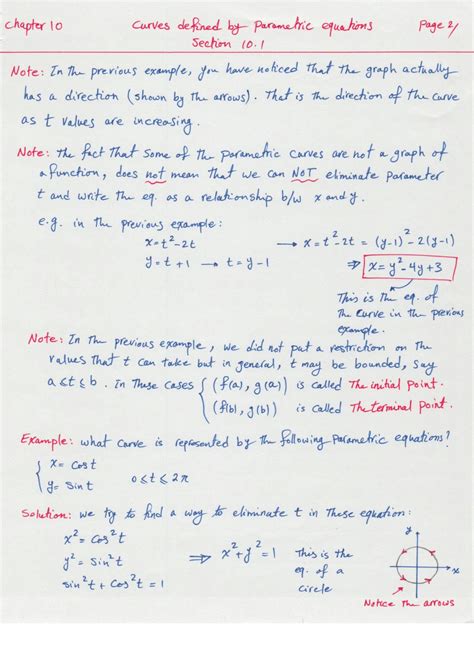 Chapter 10 Curves defined by parametric equations Page 2/
Section 10.1
Note: In the previous example, you have noticed that the graph actually
has a direction (shown by the arrows). That is the direction of the curve
as t values are increasing.
Note: the fact that some of the parametric curves are not a graph of
a function, does not mean that we can NOT eliminate parameter
t and write the eq. as a relationship b/w x and y.
e.g. in the previous example:
x=t²-2t → x=t²-2t = (y-1)²-2(y-1)
y=t+1 → t=y-1 ⇒ x=y²-4y+3
This is the eq. of
the curve in the previous
example.
Note: In the previous example, we did not put a restriction on the
values that t can take but in general, t may be bounded, say
a≤t≤b. In these cases { (f(a), g(a)) is called the initial point.
(f(b), g(b)) is called the terminal point.
Example: what curve is represented by the following parametric equations?
{ x= cost
y= sint 0≤t≤2π
Solution: we try to find a way to eliminate t in these equation:
x²= cos²t
y²= sin²t ⇒ x²+y²=1 This is the
eq. of a
circle
sin²t+cos²t=1
y
x
Notice the arrows